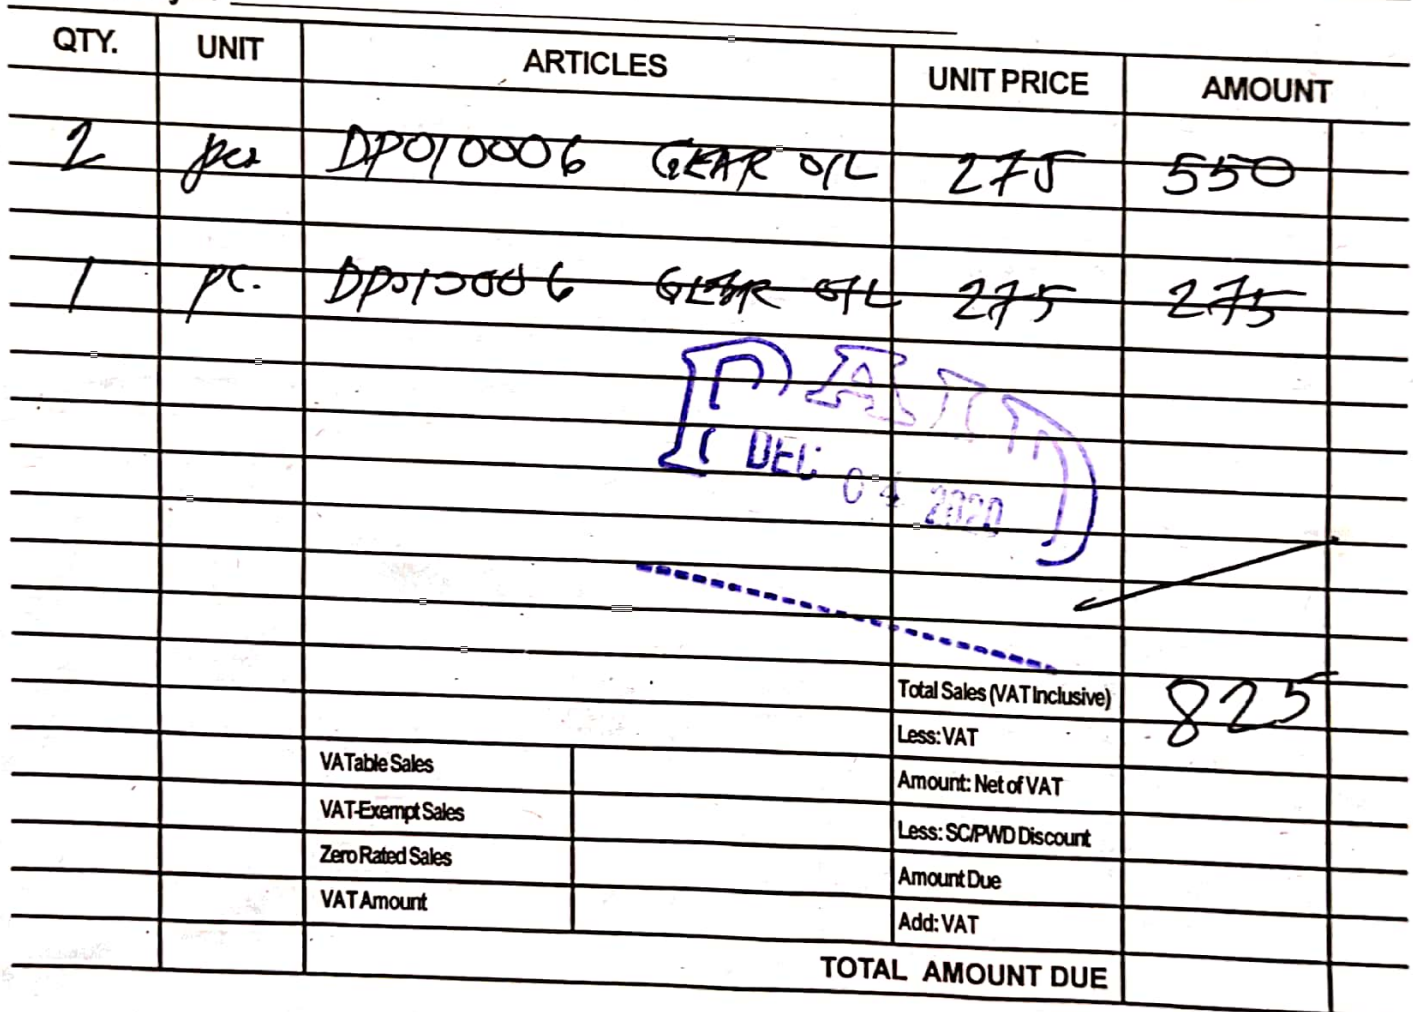 QTY. UNIT ARTICLES UNIT PRICE AMOUNT
2 pcs DP010006 GEAR OIL 275 550
1 pc. DP010006 GEAR OIL 275 275
PAID
DEC 04 2020
Total Sales (VAT Inclusive) 825
Less: VAT
VATable Sales
Amount: Net of VAT
VAT-Exempt Sales
Less: SC/PWD Discount
Zero Rated Sales
Amount Due
VAT Amount
Add: VAT
TOTAL AMOUNT DUE